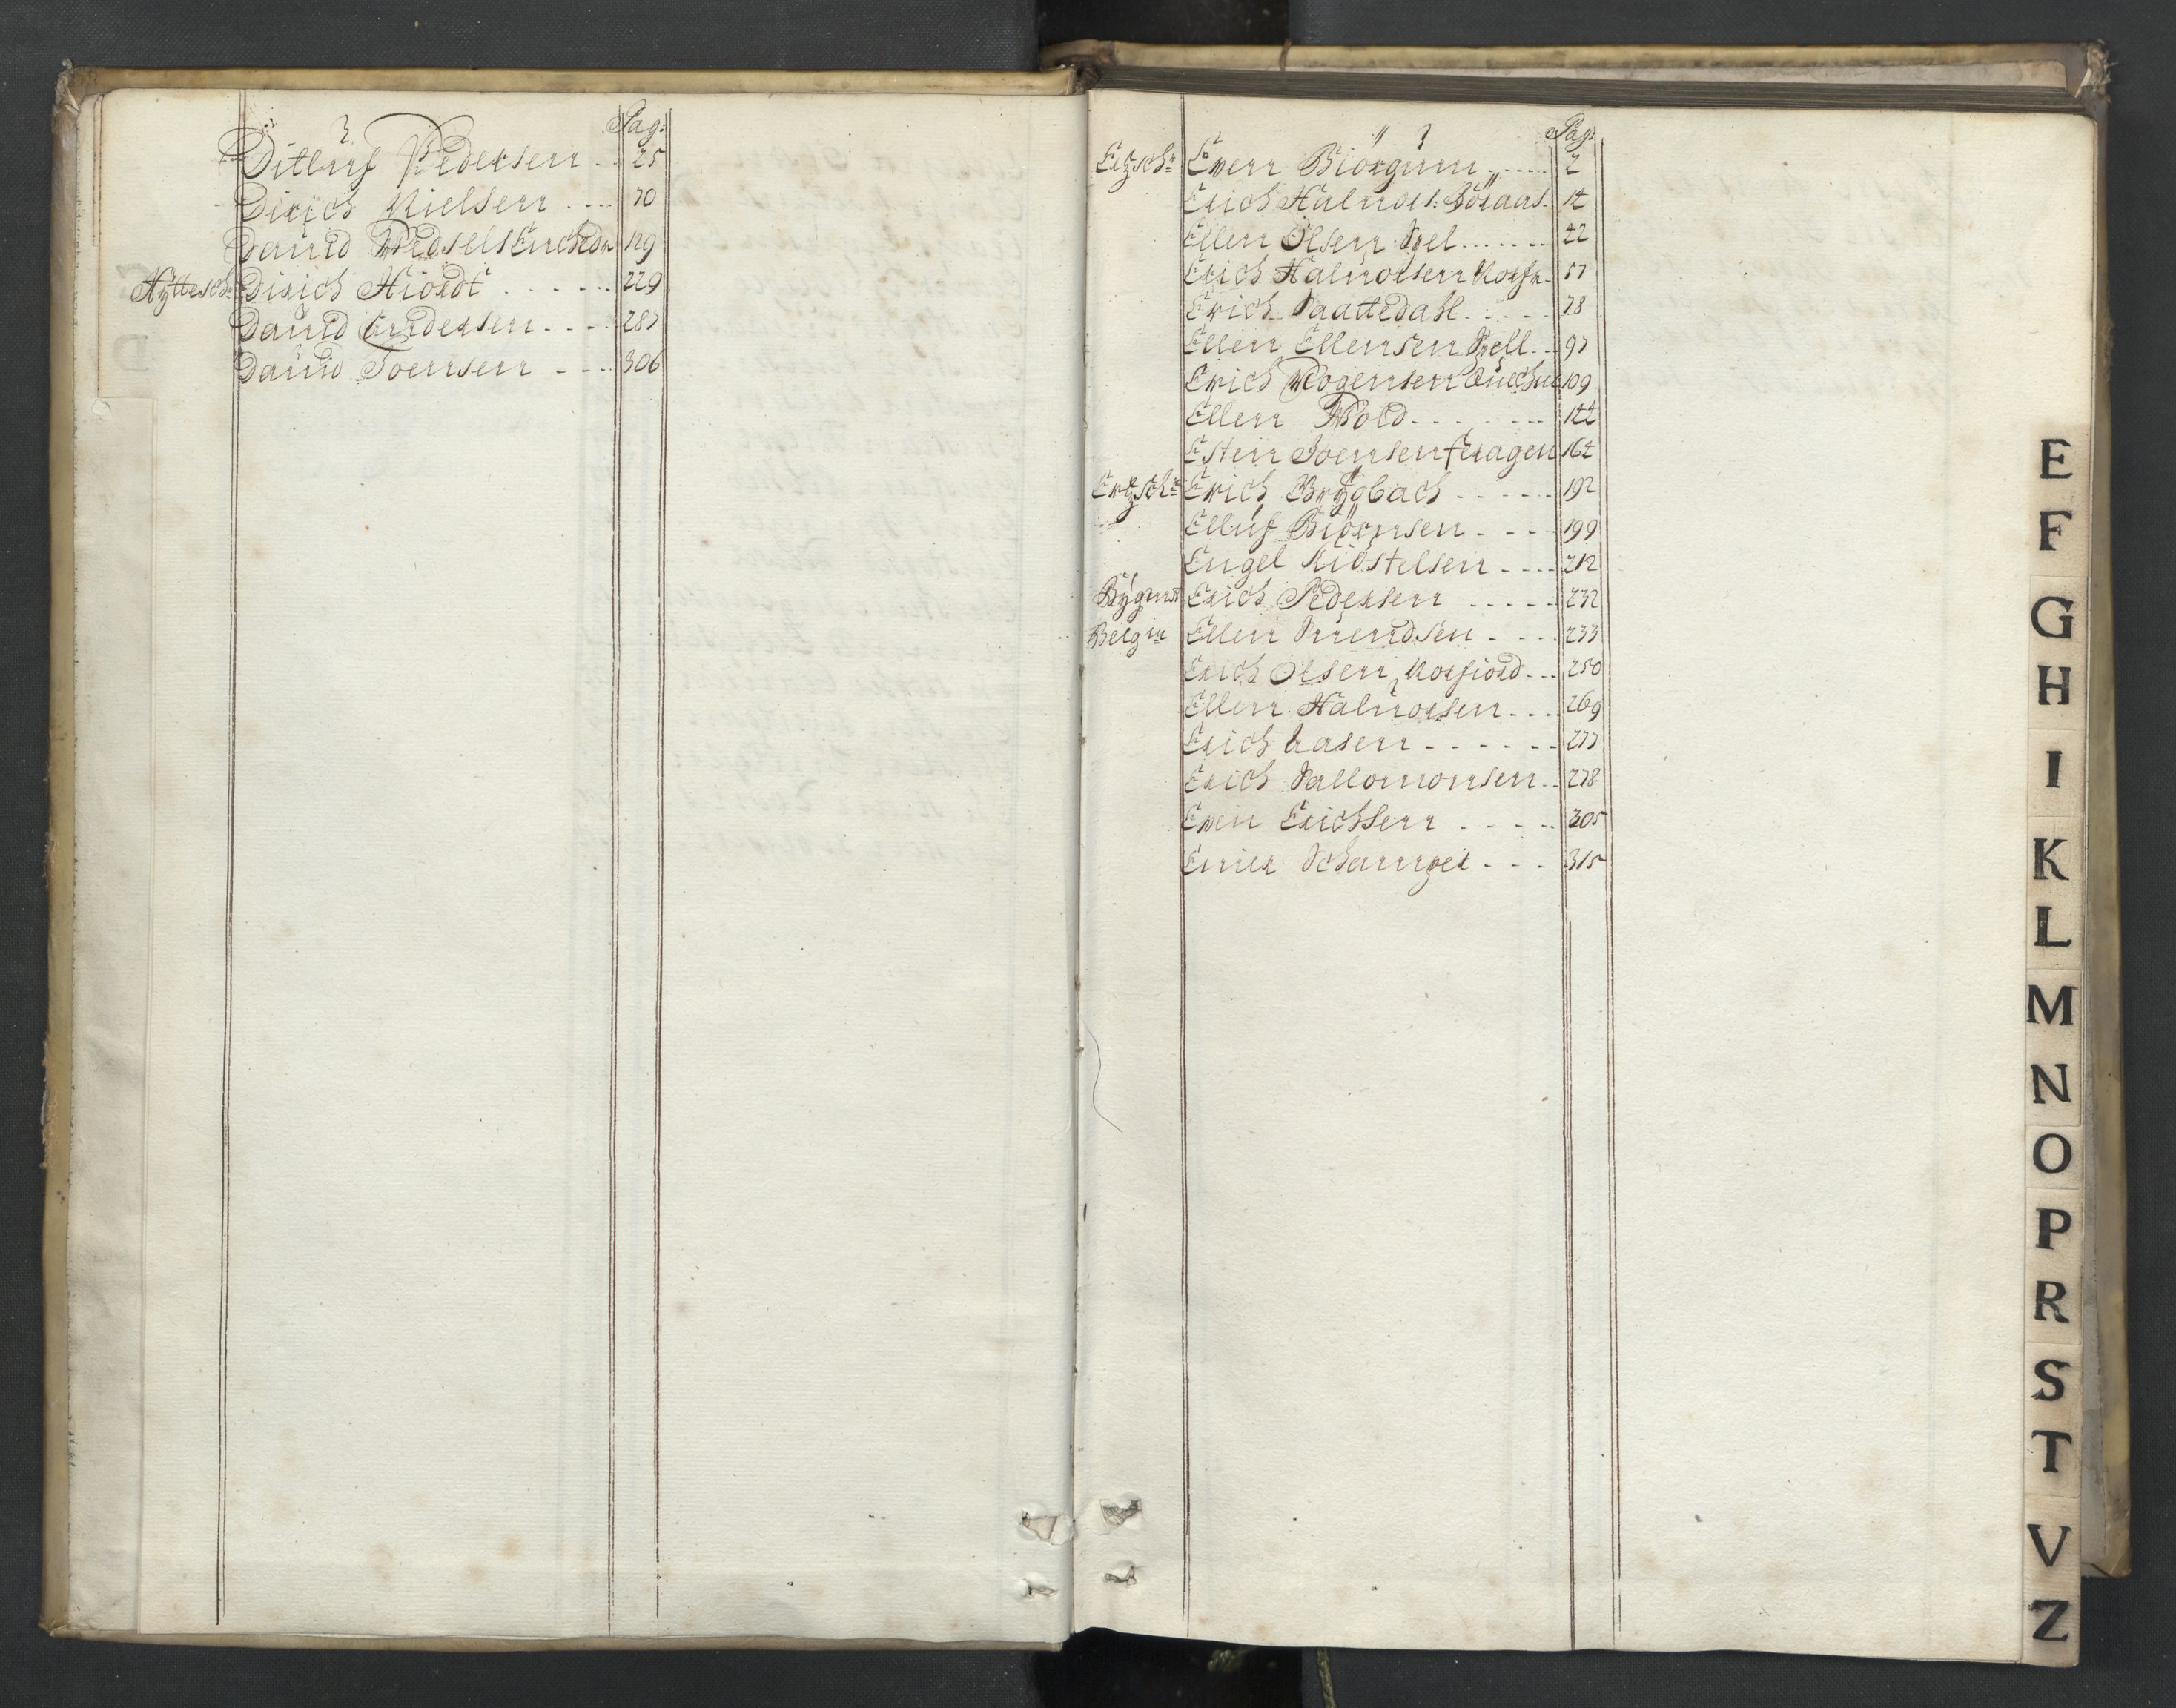 Pag:
Ditluf Pedersen . . 25
Dirich Nielsen . . . . 70
David Wedsels Enchedn 129
Hÿttesch: Dirich Hiordt . . . . . . 229
David Andersen . . . . 287
David Joensen . . . . 306
Pag:
Erzschr: Even Biörgum . . . . . 2
Erich Halvors: Röraas . 14
Ellen Olsen Sæl . . . . . . 42
Erich Halvorsen Korsfn. 57
Erich Saattedahl . . . . . 78
Ellen Ellensen Sæll . . . 97
Erich Mogensen 109
Ellen Wold . . . . . . . 144
Esten Joensen Feragen 164
Erzschr: Erich Brÿgbach . . . . . 192
Elluf Biörnsen . . . . 199
Engel Kiöstelsen . . . . 212
Erich Pedersen . . . . . 232
Ellen Svendsen . . . . 233
Erich Olsen Korsfiord . . . 250
Ellen Halvorsen . . . . 269
Erich Aasen . . . . . . 277
Erich Sallomonsen . . 278
Even Erichsen . . . . . 305
Schanzer . . . 315
E
F
G
H
I
K
L
M
N
O
P
R
S
T
V
Z